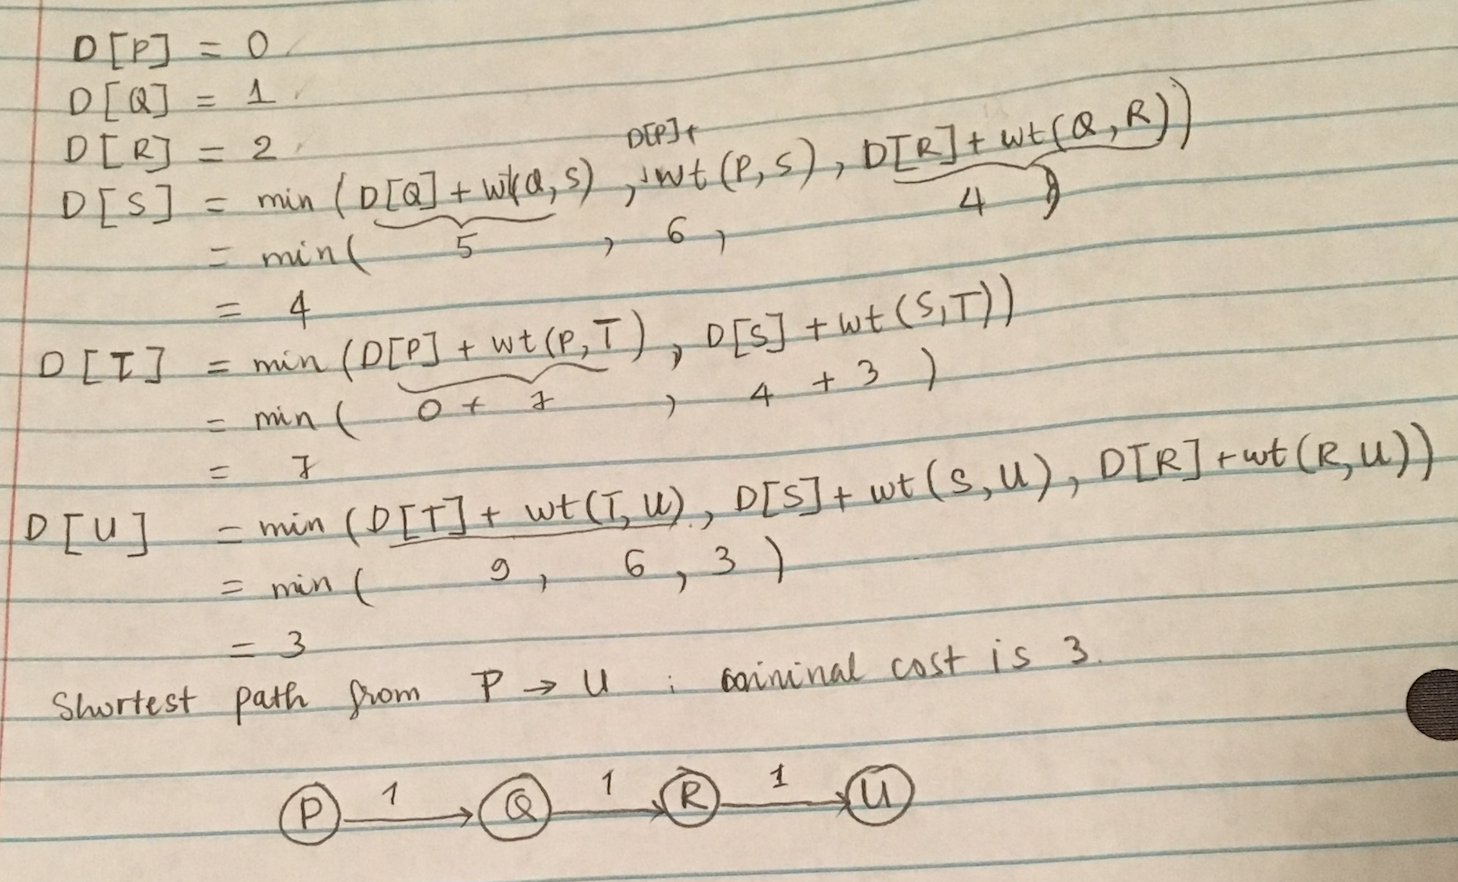 D[P] = 0
D[Q] = 1
D[R] = 2
D[S] = min (D[Q] + wt(Q,S) , D[P]+ wt (P,S) , D[R] + wt(Q,R))
= min( 5 , 6 , 4 )
= 4
D[T] = min (D[P] + wt(P,T) , D[S] + wt (S,T))
= min ( 0 + 7 , 4 + 3 )
= 7
D[U] = min (D[T] + wt(T,U) , D[S] + wt (S,U) , D[R] + wt (R,U))
= min ( 9 , 6 , 3 )
= 3
Shortest path from P → U : mininal cost is 3.
P 1 → Q 1 → R 1 → U